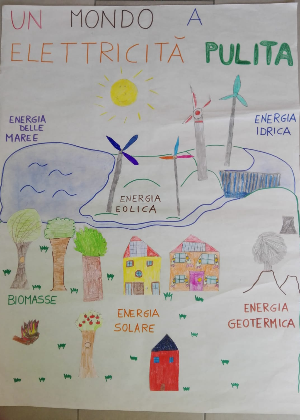 UN MONDO A
ELETTRICITĂ PULITA
ENERGIA
DELLE
MAREE
ENERGIA
IDRICA
ENERGIA
EOLICA
BIOMASSE
ENERGIA
SOLARE
ENERGIA
GEOTERMICA